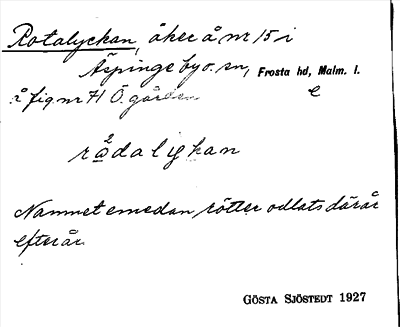 Rotalyckan, åker å nr 15 i
Äspinge by o. sn, Frosta hd, Malm. l.
å fig nr 71 Ö. gården e
2
rådalykan
Namnet emedan rötter odlats där år
efter år.
GÖSTA SJÖSTEDT 1927